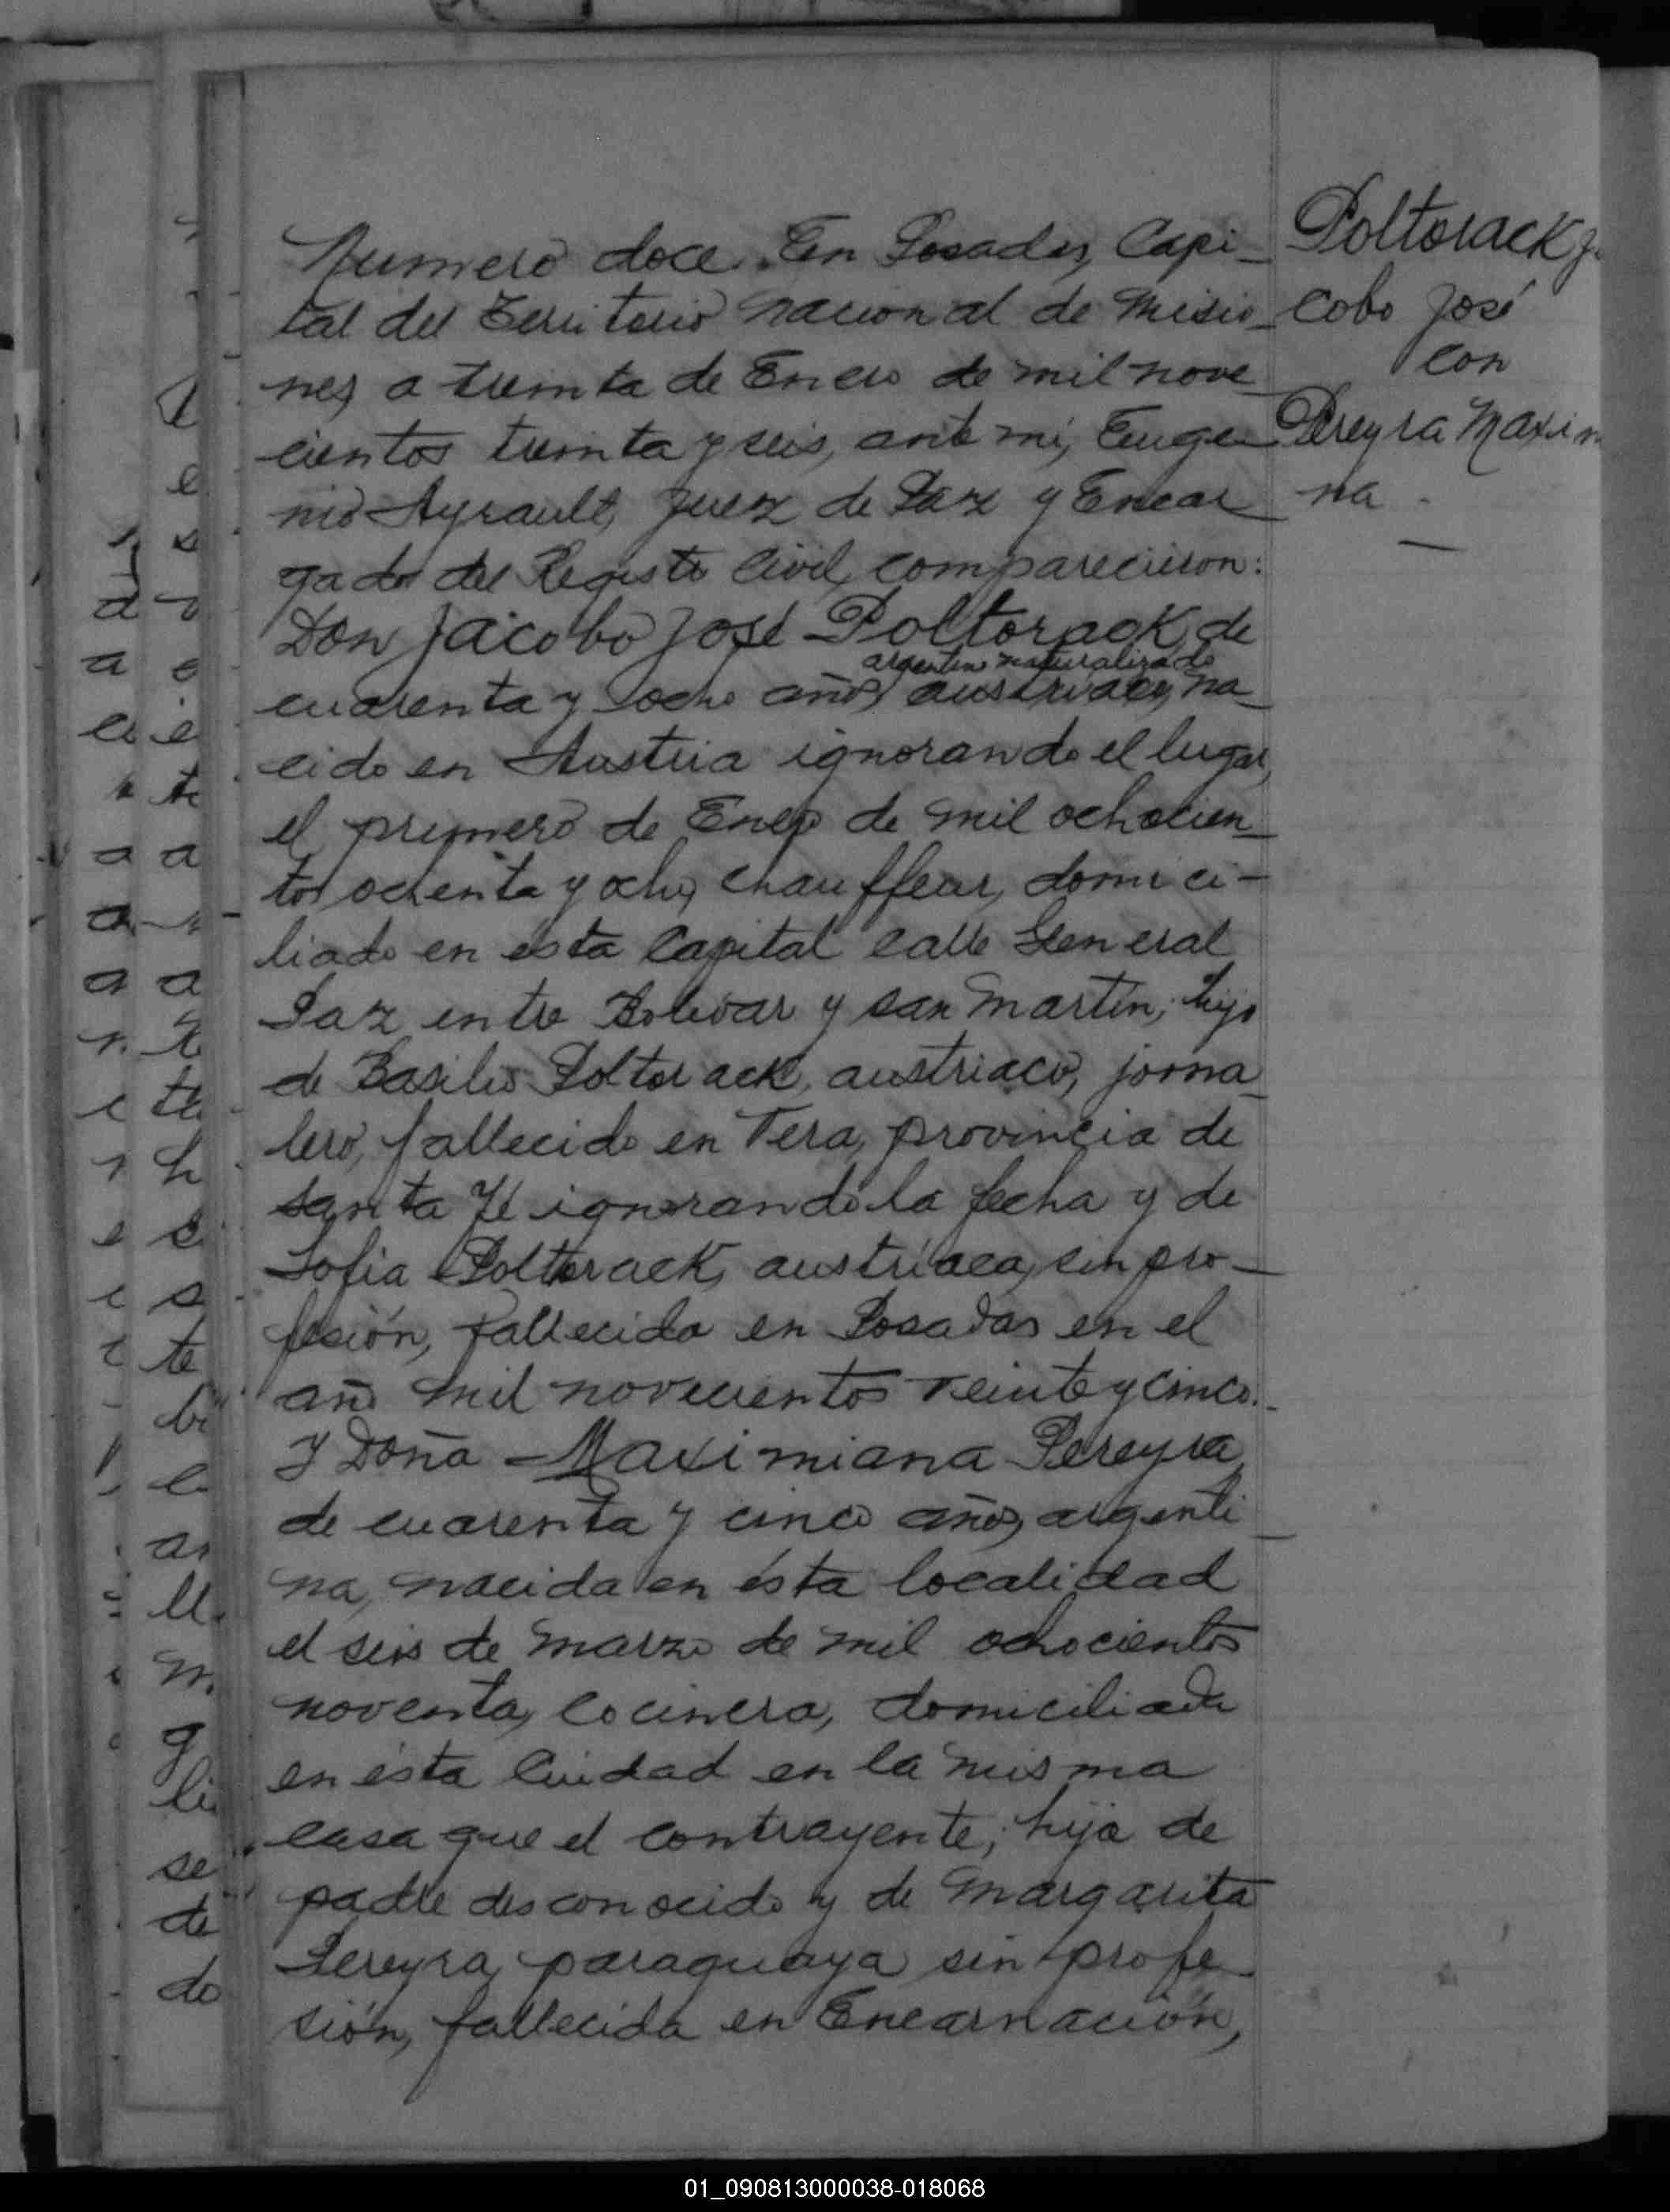 Numero doce. En Posadas, Capi-
tal del Territorio nacional de Misio-
nes a treinta de Enero de mil nove
cientos treinta y seis, ante mi, Euge
nio Ayrault, Juez de Paz y Encar
gado del Registro Civil, comparecieron:
Don Jacobo José Poltorack, de
argentino naturalizado
cuarenta y ocho años, austriaco, na-
cido en Austria ignorando el lugar,
el primero de Enero de mil ochocien-
tos ochenta y ocho, chauffeur, domici-
liado en ésta Capital calle General
Paz entre Bolivar y San Martín; hijo
de Basilio Poltorack, austriaco, jorna
lero, fallecido en Tera, provincia de
Santa Fé ignorando la fecha y de
Sofia Poltorack, austríaca, sin pro-
fesión, fallecida en Posadas en el
año mil novecientos veinte y cinco.-
Y Doña Maximiana Pereyra,
de cuarenta y cinco años, argenti
na, nacida en ésta localidad
el seis de Marzo de mil ochocientos
noventa, cocinera, domiciliada
en ésta Ciudad en la misma
casa que el contrayente; hija de
padre desconocido y de Margarita
Pereyra, paraguaya sin profe
sión, fallecida en Encarnación,
Poltorack Ja
cobo José
con
Pereyra Maxim
na.
t
h
te
bi
ll
m
g
li
se
de
do
01_090813000038-018068